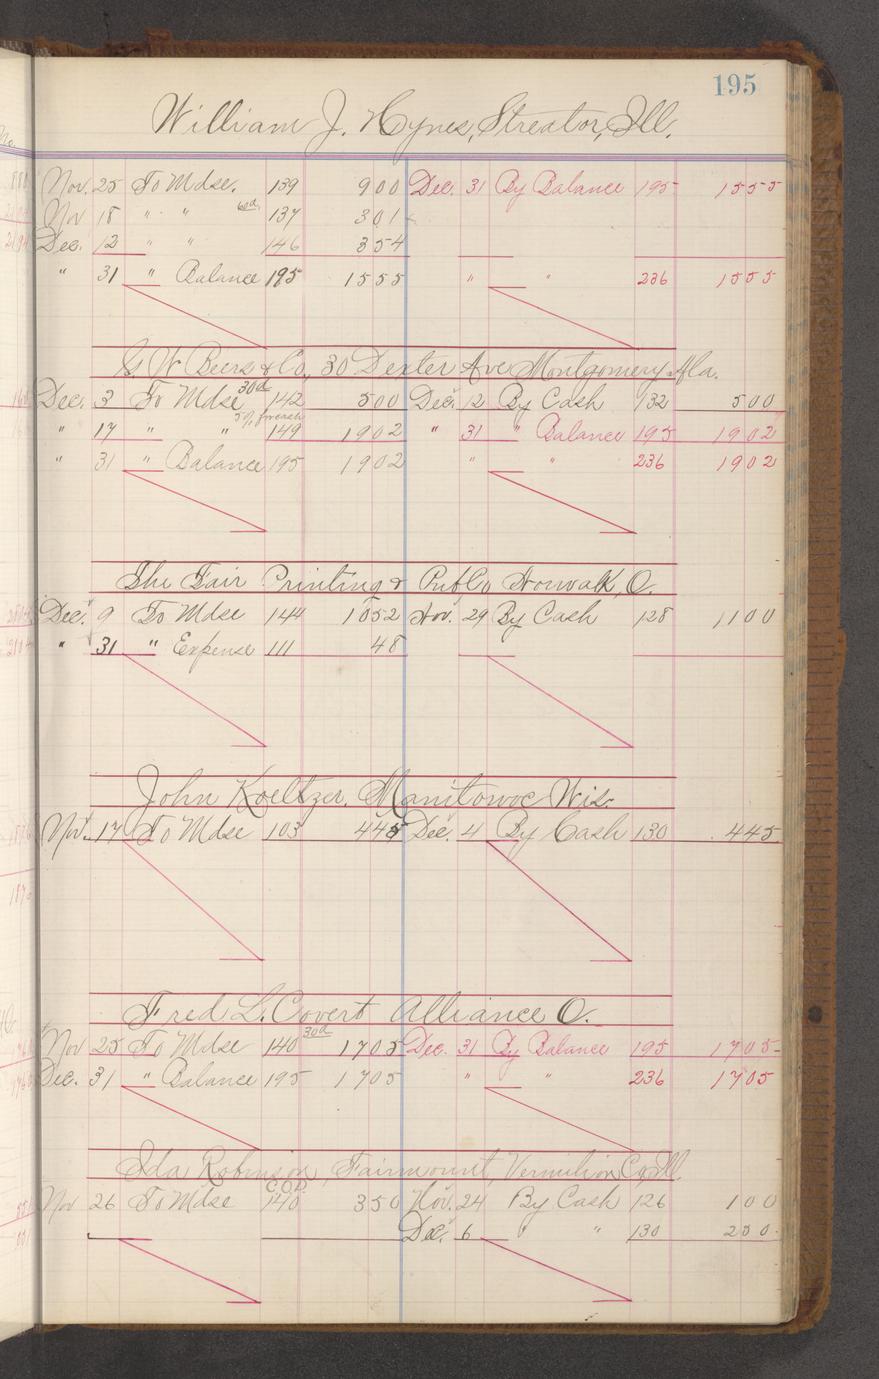 195
William J. Hynes, Streator, Ill.
Nov. 25 To Mdse. 139 900 Dec. 31 By Balance 195 1555
Nov 18 " " 60d. 137 301
Dec. 12 " " 146 354
" 31 " Balance 195 1555 " " 236 1555
S W Beers & Co., 30 Dexter Ave Montgomery Ala.
Dec. 3 To Mdse 30d 142 500 Dec. 12 By Cash 132 500
" 17 " " 5% for cash 149 1902 " 31 " Balance 195 1902
" 31 " Balance 195 1902 " " 236 1902
The Fair Printing & Pub Co Norwalk, O.
Dec. 9 To Mdse 144 1052 Nov. 29 By Cash 128 1100
" 31 " Expense 111 48
John Koeltzer, Manitowoc Wis.
Nov. 17 To Mdse 103 445 Dec. 4 By Cash 130 445
Fred L. Covert Alliance O.
Nov 25 To Mdse 140 30d 1705 Dec. 31 By Balance 195 1705
Dec. 31 " Balance 195 1705 " " 236 1705
Ida Robinson, Fairmount, Vermilion Co Ill.
Nov 26 To Mdse C.O.D. 140 350 Nov. 24 By Cash 126 100
Dec. 6 " " 130 250